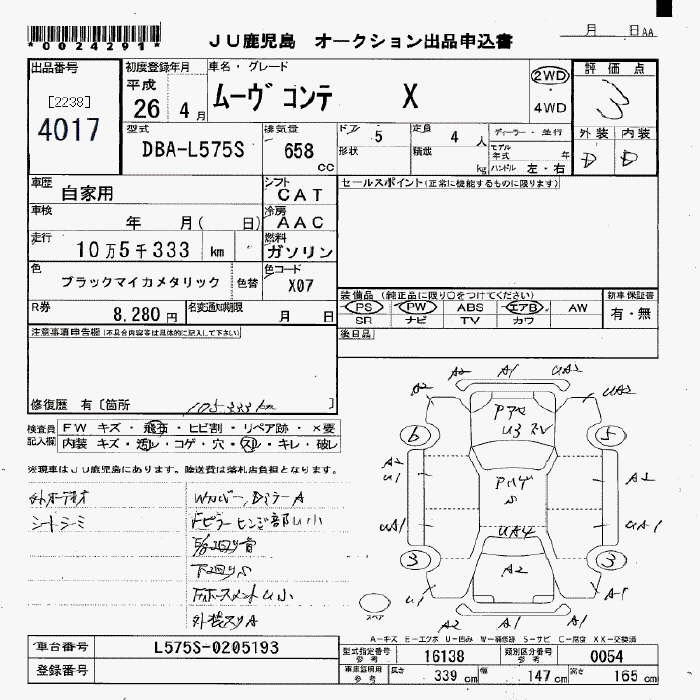 *00242​91*
JU鹿児島 オークション出品申込書
月 日AA
出品番号
[2238]
4017
初度登録年月
平成
26 4月
車名・グレード
ムーヴ コンテ X
2WD
4WD
評価点
3
外装 内装
D D
型式
DBA-L575S
排気量
658 cc
ドア 5
形状
定員 4 人
積載 kg
ディーラー・並行
モデル年式 年
ハンドル 左・右
車歴
自家用
シフト
CAT
車検
年 月( 日)
冷房
AAC
走行
10万5千333 km
燃料
ガソリン
色
ブラックマイカメタリック
色替
色コード
X07
R券
8,280円
名変通知期限
月 日
セールスポイント(正常に機能するものに限ります)
装備品(純正品に限り○をつけてください)
PS PW ABS エアB AW
SR ナビ TV カワ
新車保証書
有・無
後日品
注意事項申告欄(不具合内容等は具体的に記入して下さい)
修復歴 有〔箇所 〕
105,333km
検査員記入欄
FW キズ・飛石・ヒビ割・リペア跡・×要
内装 キズ・汚レ・コゲ・穴・スレ・キレ・破レ
※現車はJU鹿児島にあります。陸送費は落札店負担となります。
外オーディオ
シートシミ
下廻りS
外装スリA
A2 A1 UA2
A2 UA2
6 5
U3
A2 A2
U1
UA1 UA1
UA4
3 3
A2
U1 A1
A2 A1 U1
スペア
A-キズ E-エクボ U-凹み W-補修跡 S-サビ C-腐蝕 XX-交換済
車台番号
L575S-0205193
登録番号
型式指定番号 参考
16138
類別区分番号 参考
0054
車庫証明用 参考
長さ 339 cm
幅 147 cm
高さ 165 cm